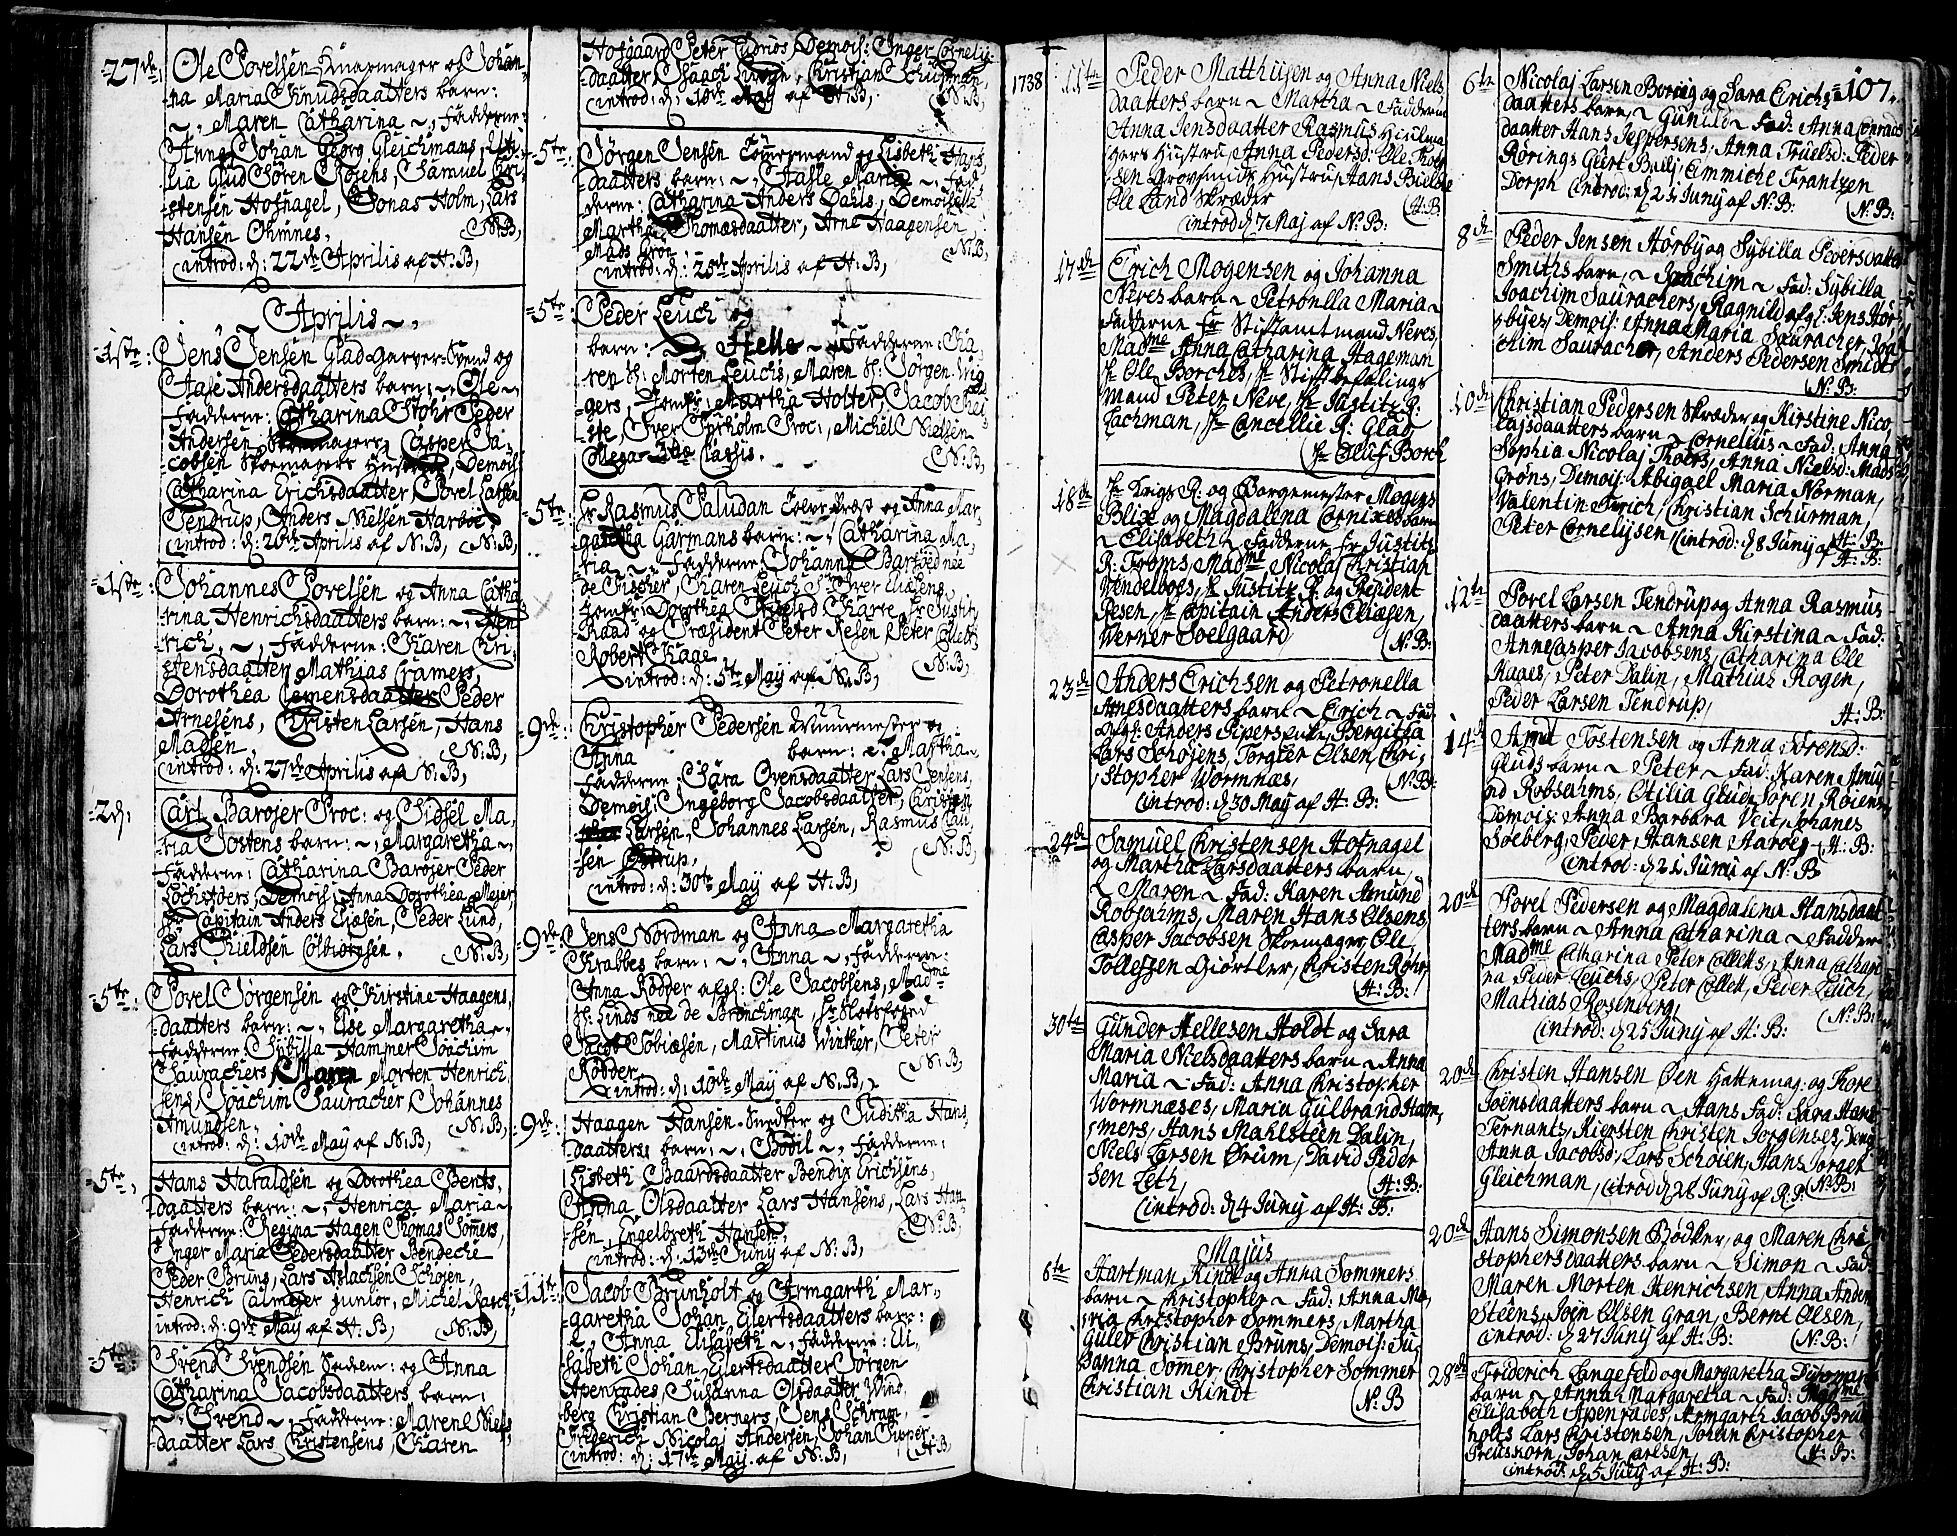 27de
Ole Povelsen Knapmager og Johan-
na Maria Knudsdaatters barn:
Maren Catharina, Fadderne:
Anna Johan Georg Gleichmans,
lia Glud Søren Røiens, Samuel Chri-
stensen Hofnagel, Jonas Holm, Lars
Hansen
N:B,
introd: d: 22de Aprilis af H:B,
Aprilis
1ste: Jens Jensen Glad Garver-Svend og
Aase Andersdaatters barn: Ole
Fadderne: Catharina Peder
Andersen Casper Ja-
cobsen Skomagers Hustrue, Demois:
Catharina Erichsdaatter, Povel Larsen
Tendrup, Anders Nielsen Harboe
introd: d: 26de Aprilis af N:B, N:B,
1ste: Johannes Povelsen og Anna Catha
rina Henrichsdaatters barn: Hen
rich, Fadderne: Karen Chri-
stensdaatter Mathias Cramers,
Dorothea Clemensdaatter Peder
Arnesens, Christen Larsen, Hans
Madsen,
N:B,
introd: d: 27de Aprilis af N:B,
2d: Carl Barojer Proc: og Sidsel Ma-
ria Jostens barn: Margaretha
Fadderne: Catharina Barojer Peder
Demois: Anna Dorothea Mejer,
Hr Capitain Anders Eliæsen, Peder Lund,
Lars Kieldsen Colbiørnsen.
N:B,
5te: Povel Jørgensen og Kirstine Haagens
daatters barn: Else Margaretha
Fadderne: Sybilla Hammer Joachim
Saurachers, Maren Morten Henrich
sens, Joachim Sauracher, Johannes
Amundsen,
N:B,
introd: d: 10de May af N:B,
5te, Hans Haraldsen og Dorothea Bents
daatters barn: Henrica Maria
Fadderne: Regina Hagen Thomas Somers,
Inger Maria Pedersdaatter Bendeche
Peder Bruns, Lars Aslachsen Schøjen,
Henrich Calmejer junior, Michel
introd: d: 9de May af H:B, N:B,
5te: Svend Svendsen og Anna
Catharina Jacobsdaatters barn:
Svend, Fadderne: Maren Niels
daatter Lars Christensens, Karen
Hofgaard Peter Demois: Inger Cornelij
daatter, Isaach Christian Schurman,
introd: d: 10de May af H:B, N:B,
5te: Jørgen Jensen Tømermand og Lisbeth Hans
daatters barn: Maria, Fad-
derne: Catharina Anders Dahls, Demoiselle
Martha Thomasdaatter, Arne Haagensen,
Mads Grøn
N:B,
introd: d: 25de Aprilis af H:B,
5te: Peder Leuch og
barn: Helle Fadderne: Ka-
ren Sl: Morten Leuchs, Maren Sl: Jørgen Wig
gers, Jomfr: Martha Holter, Jacob
Iver Proc:, Michel Nielsen
Collega 3tiæ Classis.
N:B,
5te: Hr Rasmus Paludan og Anna Mar
garetha Garmans barn: Catharina Ma-
ria Fadderne: Johanna née
de Fischer, Karen Leuch Sl: Iver Eliæsens,
Jomfr: Dorothea Hr Justit:
Raad og Præsident Peter Resen, Peter Collett
Robert
introd: d: 5te May af N:B, N:B,
9de: Christopher Pedersen Muurmester og
Anna barn: Martha
Fadderne: Sara Ovensdaatter Lars Jensens,
Demois: Ingeborg Jacobsdaatter, Christen
Larsen, Johannes Larsen, Rasmus
sen
N:B,
introd: d: 30te May af H:B,
9de: Jens Nordman og Anna Margaretha
Krabbes barn: Anna, Fadderne:
Anna Rødder afgl: Ole Jacobsens, Madme
Sl: Linds née de Bronchman, Hr Slotsfoged
Jacob Tobiæsen, Martinus Winther, Peter
Rødder
N:B,
introd: d: 10de May af N:B,
9de: Haagen Hansen Snedker og Juditha Hans
daatters barn: Bodil, Fadderne:
Lisbeth Baardsdaatter Bendix Erichsens,
Anna Olsdaatter Lars Hansens, Lars Han
sen, Engelbreth Hansen.
N:B,
introd: d: 13de Juny af N:B,
11te: Jacob Brunholt og Armgarth Mar-
garetha Johan Eilertsdaatters barn:
Anna Elisabeth, Fadderne: Eli-
sabeth Johan Eilertsdaatter Jørgen
Apenrades, Susanna Olsdaatter Wind
berg Christian Berners, Jens Schram,
Friderich Nicolaj Andersen, Johan
introd: d: 17de May af N:B, H:B,
1738 11te Peder Matthisen og Anna Niels
daatters barn Martha Fadderne
Anna Jensdaatter Rasmus Hiulma
gers Hustru, Anna Pedersd: Ole Thor
sen Grovsmids Hustru, Hans Bielke
Ole Land Skræder
H:B
introd d 7 Maj af N:B:
17de Erich Mogensen og Johanna
Neves barn Petronella Maria
Fadderne Fr Stiftamtmand Neves,
Madme Anna Catharina Hageman
Hr Ole Borches, Hr Stiftbefalings
mand Peter Neve, Hr Justitz R:
Lachman, Hr Cancellie R: Glad
Hr Oluf Borch
18de Hr Krigs R: og Borgemester Mogens
Blix og Magdalena Cornixes barn
Elisabeth Fadderne Fr Justitz
R: Froms, Madme Nicolaj Christian
Wendelboes, Hr Justitz R: og President
Resen, Hr Capitain Anders Eliæsen,
Werner Soelgaard
N:B:
23de Anders Erichsen og Petronella
Arnesdaatters barn Erich Fad:
Afgl: Anders Pipers Enke Bergitta
Lars Schøjens, Torgier Olsen, Chri-
stopher Wormnæs,
N:B:
introd: d 30 May af H:B:
24de Samuel Christensen Hofnagel
og Martha Larsdaatters barn,
Maren Fad: Karen Amund
Robsahms, Maren Hans Olsens,
Casper Jacobsen Skomager, Ole
Tollefsen Giørtler, Christen Røhr,
H:B:
30te Gunder Hellesen Holdt og Sara
Maria Nielsdaatters barn Anna
Maria Fad: Anna Christopher
Wormnæses, Maria Gulbrand Ham,
mers, Hans Mahlsteen Dalin,
Niels Larsen Ørum, David Peder
sen Leth,
H:B:
introd: d 4 Juny af H:B:
Majus
6te Hartman Kindt og Anna Sommers
barn Christopher Fad: Anna Ma,
ria Christopher Sommers, Martha
Gulov Christian Bruns, Demois: Su
sanna Somer, Christopher Sommer
Christian Kindt
N:B
107.
6te Nicolaj Larsen Borrig og Sara Erichs
daatters barn Gunild Fad: Anna Conrads
daatter Hans Jespersens, Anna Truelsd: Peder
Rørings Geert Emmiche Frantzen
Dorph introd: d 21 Juny af N:B:
N:B:
8de Peder Jensen Hørby og Sybilla Peversdatter
Smiths barn, Joachim Fad: Sybilla
Joachim Saurachers, Ragnild afgl: Jens Hør
byes, Demois: Anna Maria Sauracher, Joa
chim Sauracher, Anders Pedersen Smidt
N:B:
10de Christian Pedersen Skræder og Kirstine Nico
lajsdaatters barn Cornelius Fad: Anna
Sophia Nicolaj Anna Nielsd: Mads
Grøns, Demois: Abigael Maria Norman,
Valentin Christian Schurman,
Peter Cornelijsen, introd: d 8 Juny af H:B:
H:B:
12te Povel Larsen Tendrup og Anna Rasmus
daatters barn Anna Kirstina Fad:
Anne Casper Jacobsens, Catharina Ole
Haaes, Peter Dalin, Mathias Rogen,
Peder Larsen Tendrup,
H:B:
14de Arnt Tostensen og Anna Sørensd:
Gluds barn Peter Fad: Karen Amu
nd Robsahms, Otilia Glud Søren Røiens,
Demois: Anna Barbara Veit, Johanes
Soeberg, Peder Hansen Aaroe
H:B:
introd: d 21 Juny af N:B
20de Povel Pedersen og Magdalena Hansdaat
ters barn Anna Catharina Fadder
Madme Catharina Peter Colletts, Anna Cathari
na Peder Leuchs, Peter Collett, Peder Leuch,
Mathias Rosenberg,
N:B:
introd: d 25 Juny af H:B:
20de Christen Hansen Øen Hattemag: og Thore
Joensdaatters barn Hans Fad: Sara Hans
Ternants, Kiersten Christen Jørgenses,
Anna Jacobsd, Lars Schøien, Hans Jørgen
Gleichman, introd d 28 Juny af R.P. N:B:
20de Hans Simonsen Bødker, og Maren Chri
stophersdaatters barn Simon Fad:
Maren Morten Henrichsen, Anna Anders
Steens, Joen Olsen Gran, Bernt Olsen,
introd: d 27 Juny af H:B:
N:B:
28de Friderich Langefeld og Margaretha
barn Anna Margaretha Fad: Madme
Elisabeth Apenrades, Armgarth Jacob Brun
holts Lars Christensen, Johan Christopher
Johan Carlsen,
H:B:
introd: d 5 July af H:B: